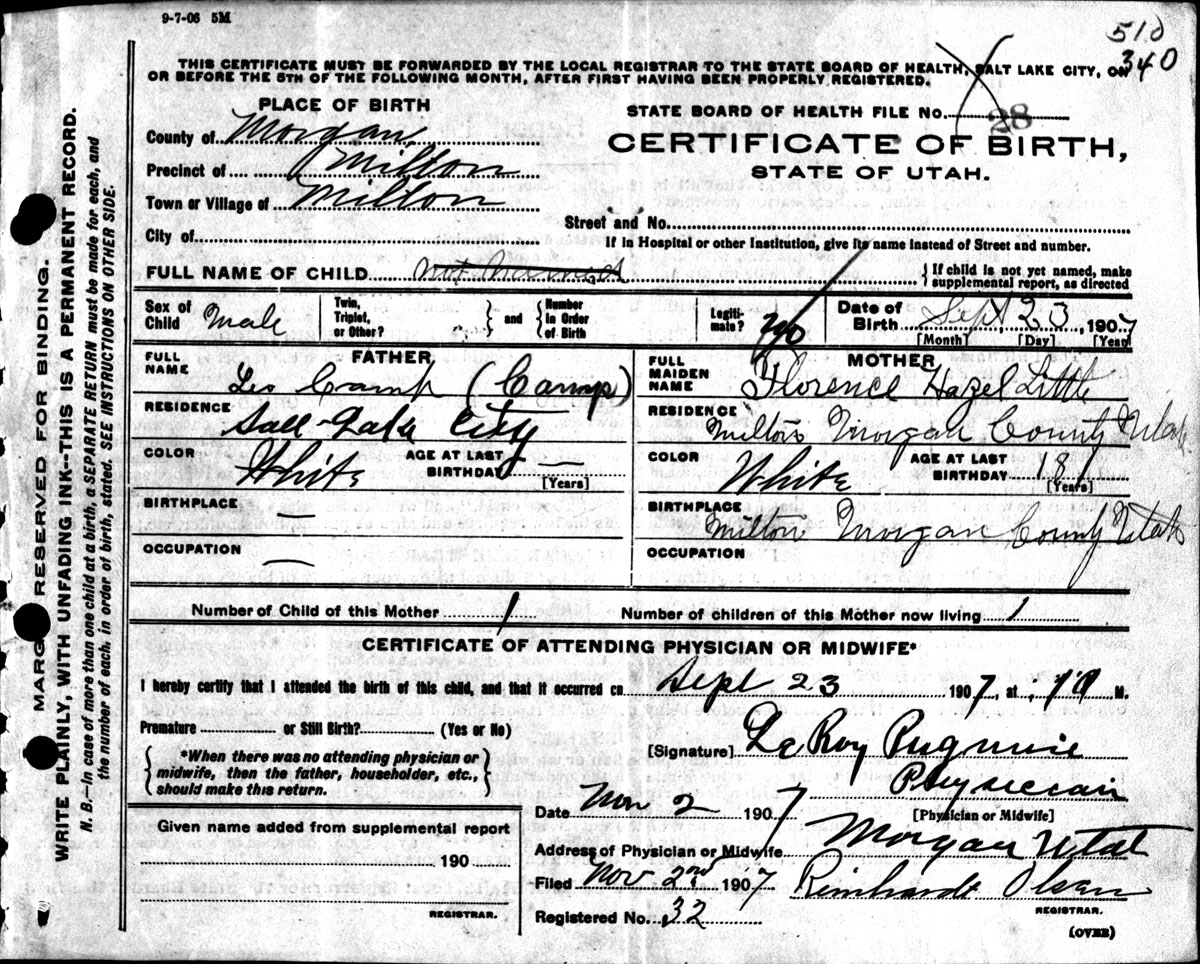 9-7-06 5M
510
340
THIS CERTIFICATE MUST BE FORWARDED BY THE LOCAL REGISTRAR TO THE STATE BOARD OF HEALTH, SALT LAKE CITY, ON
OR BEFORE THE 5TH OF THE FOLLOWING MONTH, AFTER FIRST HAVING BEEN PROPERLY REGISTERED.
PLACE OF BIRTH
County of Morgan
Precinct of Milton
Town or Village of Milton
City of
STATE BOARD OF HEALTH FILE No. 28
CERTIFICATE OF BIRTH,
STATE OF UTAH.
Street and No.
If in Hospital or other Institution, give its name instead of Street and number.
FULL NAME OF CHILD not named { If child is not yet named, make
supplemental report, as directed
Sex of Child Male
Twin, Triplet, or Other? } and { Number in Order of Birth
Legiti- mate? no
Date of Birth Sept 23, 1907
[Month] [Day] [Year]
FATHER
FULL NAME Leo Camp (Camp)
RESIDENCE Salt Lake City
COLOR White AGE AT LAST BIRTHDAY —
[Years]
BIRTHPLACE —
OCCUPATION —
MOTHER
FULL MAIDEN NAME Florence Hazel Little
RESIDENCE Milton Morgan County Utah
COLOR White AGE AT LAST BIRTHDAY 18
[Years]
BIRTHPLACE Milton Morgan County Utah
OCCUPATION
Number of Child of this Mother 1 Number of children of this Mother now living 1
CERTIFICATE OF ATTENDING PHYSICIAN OR MIDWIFE*
I hereby certify that I attended the birth of this child, and that it occurred on Sept 23 1907, at 10 M.
Premature or Still Birth? (Yes or No)
{ *When there was no attending physician or
midwife, then the father, householder, etc.,
should make this return. }
[Signature] Le Roy Pugmire
Physician
[Physician or Midwife]
Date Nov 2 1907
Address of Physician or Midwife Morgan Utah
Filed Nov 2nd 1907 Reinhardt Olsen
REGISTRAR.
Registered No. 32
(OVER)
Given name added from supplemental report
190
REGISTRAR.
MARGIN RESERVED FOR BINDING.
WRITE PLAINLY, WITH UNFADING INK--THIS IS A PERMANENT RECORD.
N. B.—In case of more than one child at a birth, a SEPARATE RETURN must be made for each, and
the number of each, in order of birth, stated. SEE INSTRUCTIONS ON OTHER SIDE.